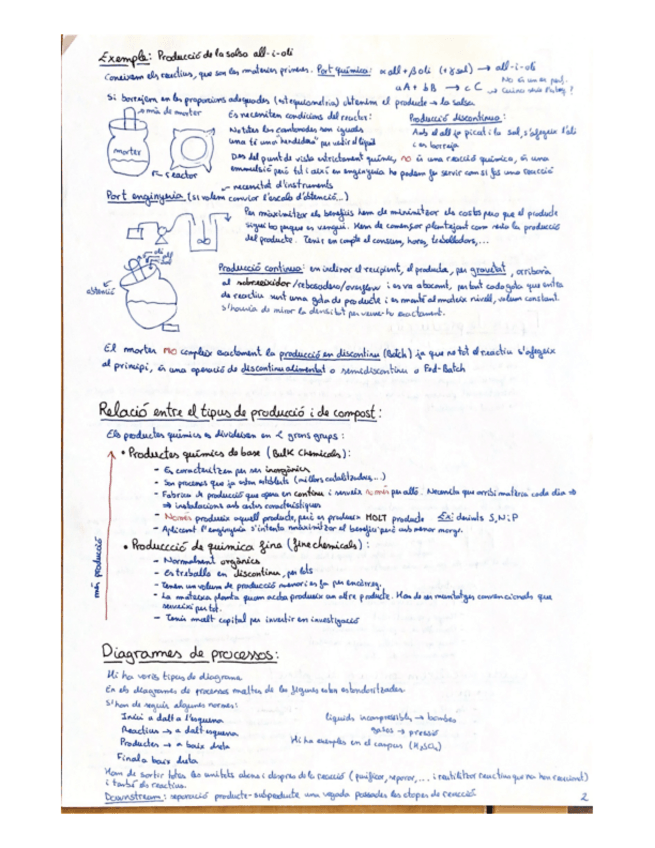 Exemple: Producció de la salsa all-i-oli
Coneixem els reactius, que son les matèries primeres. Part química: α all + β oli (+ γ sal) → all-i-oli
aA + bB → cC
No és un eq. perf.
Si barregem en les proporcions adequades (estequiometria) obtenim el producte → la salsa
→ mà de morter
morter
reactor
Es necessiten condicions del reactor:
No totes les cantonades son iguals
una té una "henedidura" per vestir el líquid
Producció discontinua:
Amb el all ja picat i la sal, s'afegeix l'oli
i es barreja
Des del punt de vista estrictament químic, no és una reacció química, és una
emmulsió però tot i així en enginyeria ho podem fer servir com si fos una reacció
→ necessitat d'instruments
Part enginyeria (si volem canviar l'escala d'obtenció...)
Per maximitzar els beneficis hem de minimitzar els costs pero que el producte
sigui bo perquè es vengui. Hem de començar plantejant com seria la producció
del producte. Tenir en compte el consum, hores, treballadors,...
oli
all
obtenció
Producció continua: en inclinar el recipient, el producte, per gravetat, arribaria
al sobreeixidor/rebosadero/overflow i es va abocant, per tant cada gota que entra
de reactiu surt una gota de producte i es manté al mateix nivell, volum constant.
s'hauria de mirar la densitat per veure-ho exactament.
El morter NO compleix exactament la producció en discontinu (Batch) ja que no tot el reactiu s'afegeix
al principi, és una operació de discontinu alimentat o semidiscontinu o Fed-Batch
Relació entre el tipus de producció i de compost:
Els productes químics es divideixen en 2 grans grups:
• Productes químics de base (Bulk Chemicals):
- Es caracteritzen per ser inorgànics
- Son processos que ja estan establerts (millors catalitzadors,...)
- Fabrica de producció que opera en continu i serveix només per allò. Necessita que arribi matèria cada dia ⇒
⇒ instalacions amb certes característiques
- Només produeix aquell producte, però es produeix MOLT producte Ex: derivats S, N i P
- Aplicant l'enginyeria s'intenta maximitzar el benefici però amb menor marge.
• Producció de química fina (fine chemicals):
- Normalment orgànics
- Es treballa en discontinu, per lots
- Tenen un volum de producció menor i es fa per encàrrec.
- La mateixa planta quan acaba produeix un altre producte. Han de ser muntatges convencionals que
serveixi per tot.
- Tenir molt capital per invertir en investigació
més producció
Diagrames de processos:
Hi ha varis tipus de diagrama
En els diagrames de processos moltes de les figures estan estandaritzades
S'han de seguir algunes normes:
Inici a dalt a l'esquerra
Reactius → a dalt esquerra
Productes → a baix dreta
Final a baix dreta
líquids incompressibles → bombes
gasos → pressió
Hi ha exemples en el campus (H₂SO₄)
Han de sortir totes les unitats abans i després de la reacció (purificar, separar, ... i reutilitzar reactius que no han reaccionat)
i també els reactius.
Downstream: separació producte-subproducte una vegada passades les etapes de reacció
2